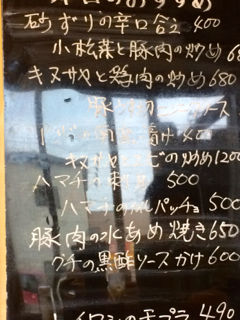 本日のおすすめ
砂ずりの辛口合え 400
小松菜と豚肉の炒め 680
キヌサヤと鶏肉の炒め 680
豚 ソース
キヌサヤとエビの炒め 1200
ハマチの刺身 500
ハマチのカルパッチョ 500
豚肉の水あめ焼き 650
グチの黒酢ソースかけ 600
イワシの天プラ 490